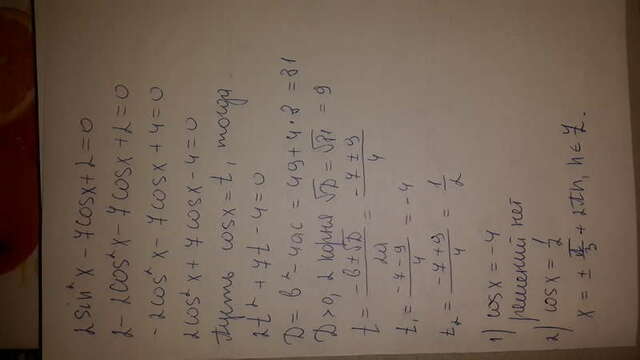 2sin²x - 7cosx + 2 = 0
2 - 2cos²x - 7cosx + 2 = 0
-2cos²x - 7cosx + 4 = 0
2cos²x + 7cosx - 4 = 0
Пусть cosx = t, тогда
2t² + 7t - 4 = 0
D = b² - 4ac = 49 + 4·8 = 81
D > 0, 2 корня √D = √81 = 9
t = (-b ± √D)/2a = (-7 ± 9)/4
t₁ = (-7 - 9)/4 = -4
t₂ = (-7 + 9)/4 = 1/2
1) cosx = -4
решений нет
2) cosx = 1/2
x = ± π/3 + 2πn, n ∈ Z.